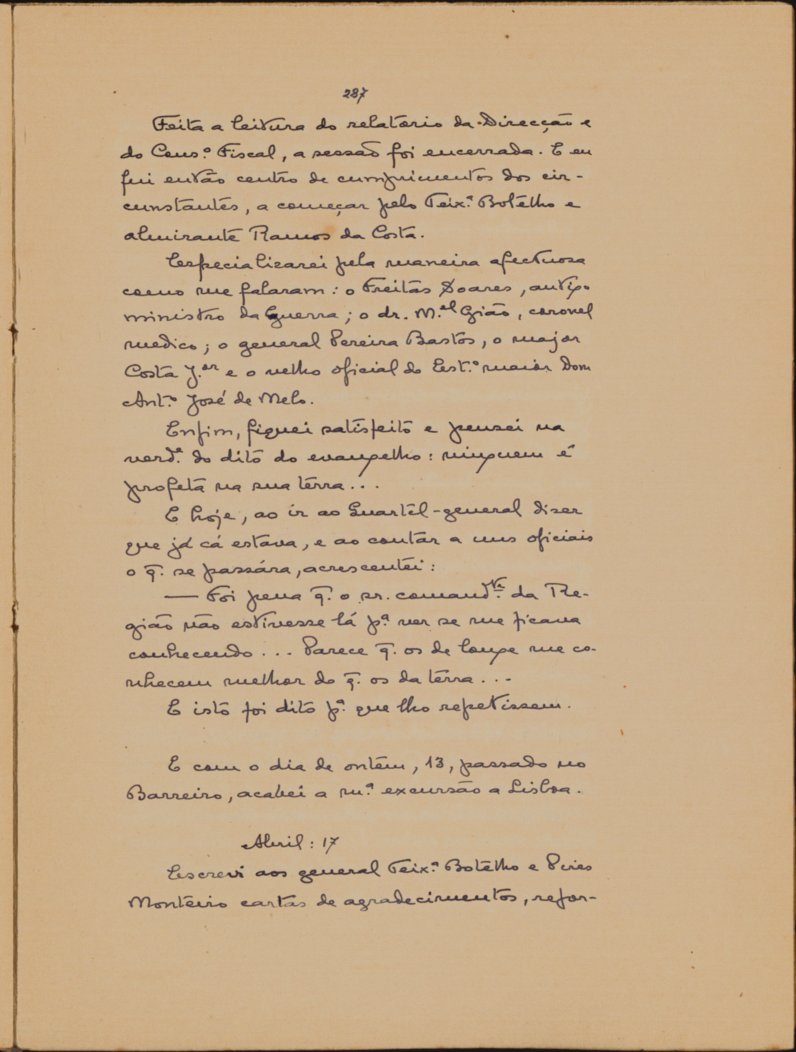 287
Feita a leitura do relatorio da Direcção e
do Cons.º Fiscal, a sessão foi encerrada. E eu
fui então centro de cumprimentos dos cir-
cunstantes, a começar pelo Teix.ª Botelho e
almirante Ramos da Costa.
Especializarei pela maneira afectuosa
como me falaram: o Freitas Soares, antigo
ministro da Guerra; o dr. M.el Gião, coronel
medico; o general Pereira Bastos, o major
Costa J.or e o velho oficial do Est.º maior Dom
Ant.º José de Melo.
Enfim, fiquei satisfeito e pensei na
verd.e do dito do evangelho: ninguem é
profeta na sua terra...
E hoje, ao ir ao Quartel-general dizer
que já cá estava, e ao contar a uns oficiais
o q. se passára, acrescentei:
— Foi pena q. o sr. comand.te da Re-
gião não estivesse lá p.ª ver se me ficava
conhecendo... Parece q. os de longe me co-
nhecem melhor do q. os da terra...
E isto foi dito p.ª que lho repetissem.
E com o dia de ontem, 13, passado no
Barreiro, acabei a m.ª excursão a Lisboa.
Abril: 17
Escrevi aos general Teix.ª Botelho e Pires
Monteiro cartas de agradecimentos, refor-